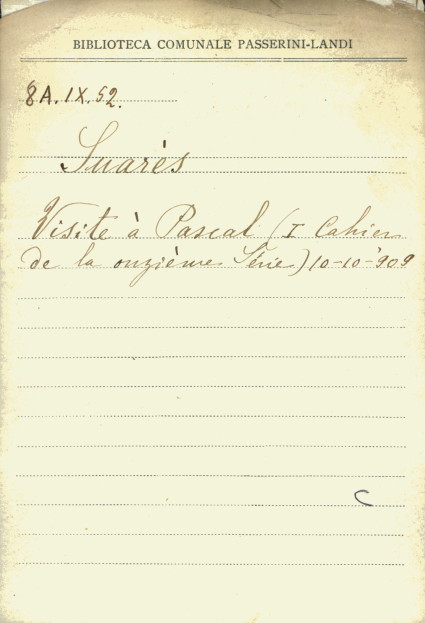 BIBLIOTECA COMUNALE PASSERINI-LANDI
8A.IX.52.
Suarès
Visite à Pascal (I Cahier
de la onzième Série) 10-10-'909
C